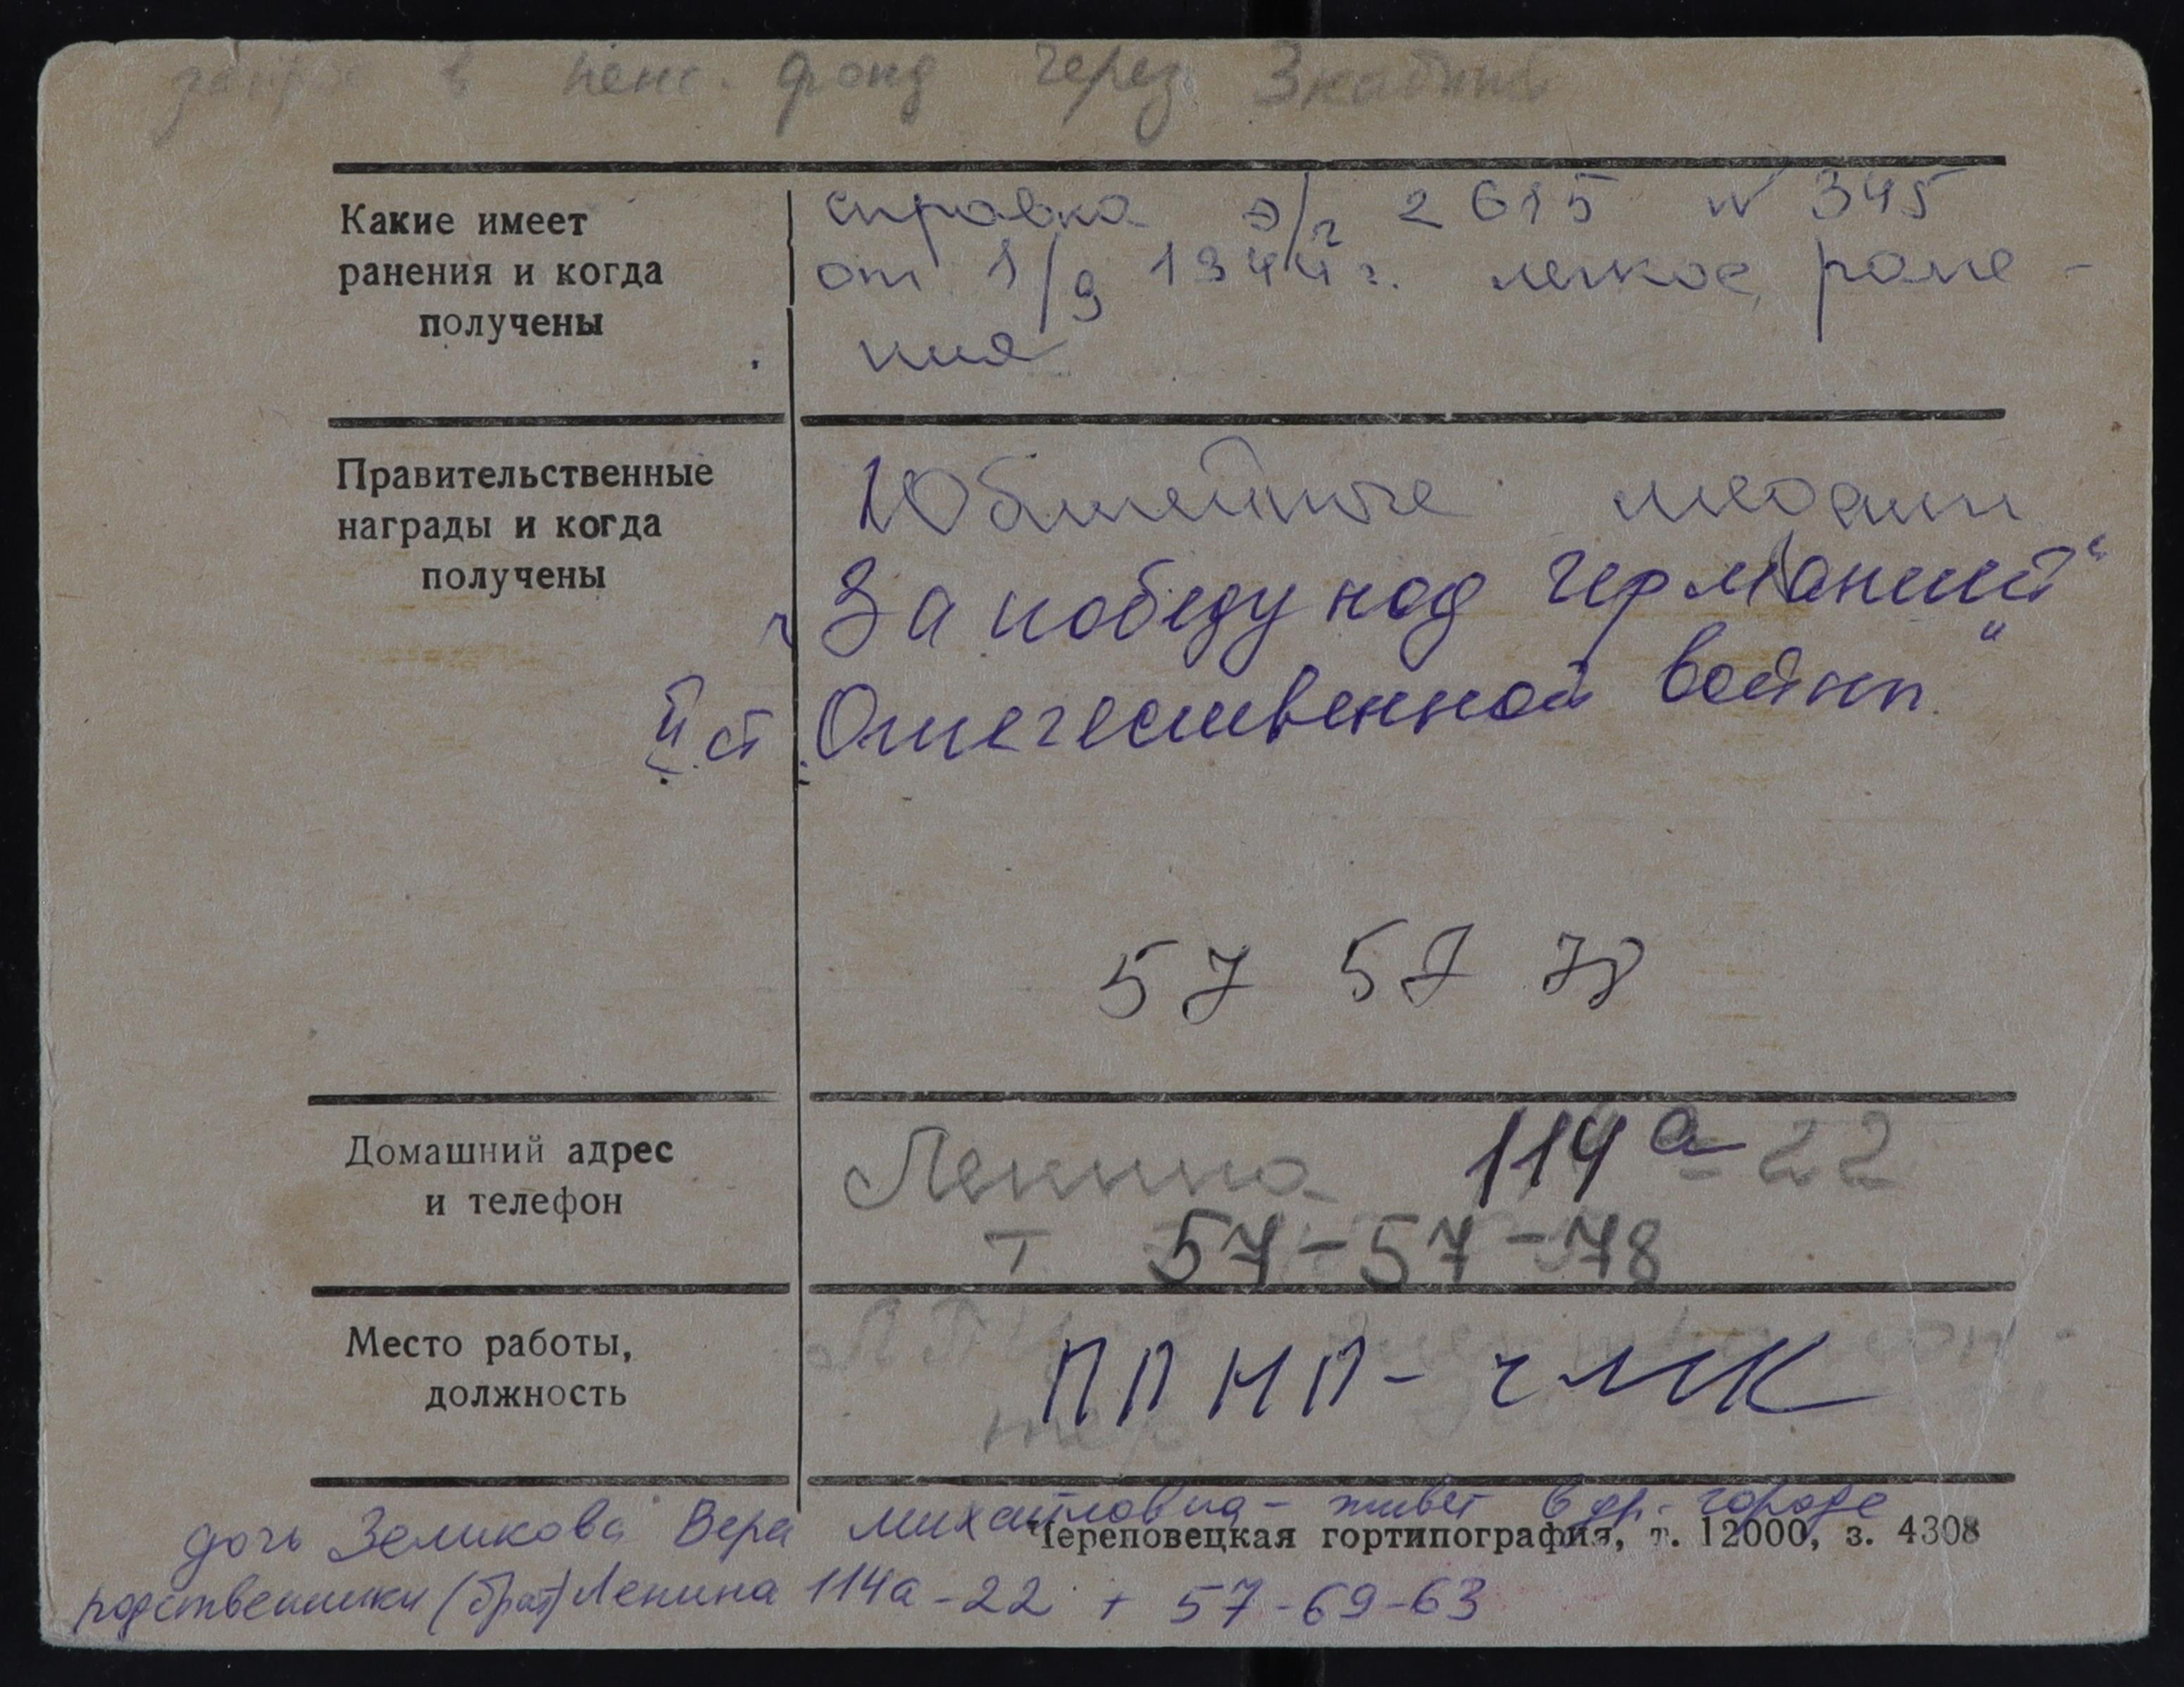 в пенс. фонд через
Какие имеет
ранения и когда
получены
справка э/г 2615 N 345
от 1/9 1944 г. легкое ране-
ния
Правительственные
награды и когда
получены
Юбилейные медали
За победу над Германией"
II ст. Отечественной войны"
57 57 78
Домашний адрес
и телефон
Ленина 114а-22
т 57-57-78
Место работы,
должность
ППНП-ЧМК
дочь Зеликова Вера Михайловна - живет в др. городе
Череповецкая гортипография, т. 12000, з. 4308
родственники (брат) Ленина 114а-22 т 57-69-63